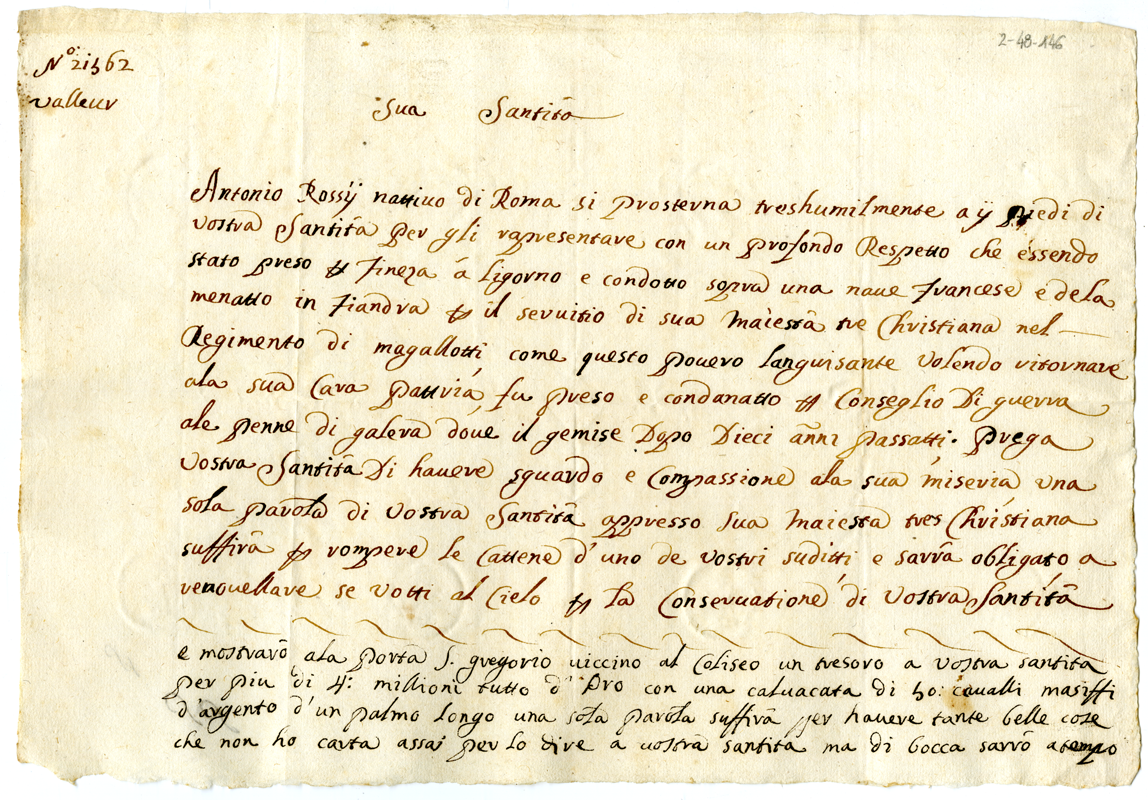 2-48-146
No. 21562
valleur
Sua Santità
Antonio Rossÿ nattiuo di Roma si prosterna treshumilmente a ÿ piedi di
vostra Santità per gli rapresentare con un profondo Respetto che éssendo
stato preso ꝑ fineza á ligorno e condotto sopra una naue francese e dela
menatto in fiandra ꝑ il seruitio di sua Maiestà tre Christiana nel
Regimento di magallotti come questo pouero languisante volendo ritornare
ala sua Cara pattria, fu preso e condanatto ꝑ Conseglio Di guerra
ale penne di galera doue il gemise Dopo Dieci anni passatti. prega
vostra Santità Di hauere sguardo e Compassione ala sua miseria una
sola parola di vostra Santità appresso sua Maiestà tres Christiana
suffirà ꝑ rompere le Cattene d'uno de vostri suditti e sarrà obligato a
renouellare se votti al Cielo ꝑ la Conseruatione di vostra Santità
e mostrarò ala porta S. gregorio uiccino al Coliseo un tresoro a vostra santita
per piu di 4: millioni tutto d'Oro con una caluacata di 50: cavalli masiffi
d'argento d'un palmo longo una sola parola suffirà per hauere tante belle cose
che non ho carta assai per lo dire a uostra santita ma di bocca sarrò atempo